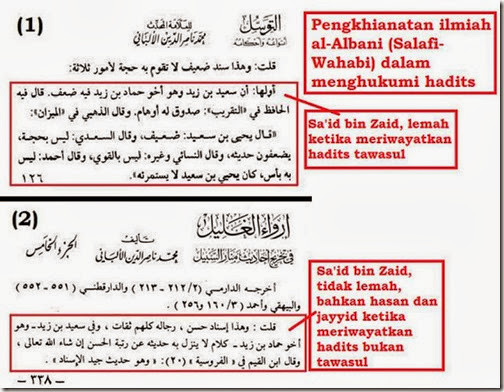 (1)
التوسل
أنواعه وأحكامه
للعلامة المحدث
محمد ناصر الدين الألباني
قلت: وهذا سند ضعيف لا تقوم به حجة لأمور ثلاثة:
أولها: أن سعيد بن زيد وهو أخو حماد بن زيد فيه ضعف. قال فيه
الحافظ في «التقريب»: صدوق له أوهام. وقال الذهبي في «الميزان»:
«قال يحيى بن سعيد: ضعيف، وقال السعدي: ليس بحجة،
يضعفون حديثه، وقال النسائي وغيره: ليس بالقوي، وقال أحمد: ليس
به بأس، كان يحيى بن سعيد لا يستمرئه».
١٢٦
Pengkhianatan ilmiah
al-Albani (Salafi-
Wahabi) dalam
menghukumi hadits
Sa'id bin Zaid, lemah
ketika meriwayatkan
hadits tawasul
(2)
إرواء الغليل
في تخريج أحاديث منار السبيل
تأليف
محمد ناصر الدين الألباني
الجزء الخامس
أخرجه الدارمي (٢/٢١٢ - ٢١٣) والدارقطني (٥٥١ - ٥٥٢)
والبيهقي وأحمد (٣/١٦٠ و ٢٥٦).
قلت: وهذا إسناد حسن، رجاله كلهم ثقات، وفي سعيد بن زيد - وهو
أخو حماد بن زيد - كلام لا ينزل به حديثه عن رتبة الحسن إن شاء الله تعالى،
وقال ابن القيم في «الفروسية» (٢٠): «وهو حديث جيد الإسناد».
- ٣٣٨ -
Sa'id bin Zaid,
tidak lemah,
bahkan hasan dan
jayyid ketika
meriwayatkan
hadits bukan
tawasul